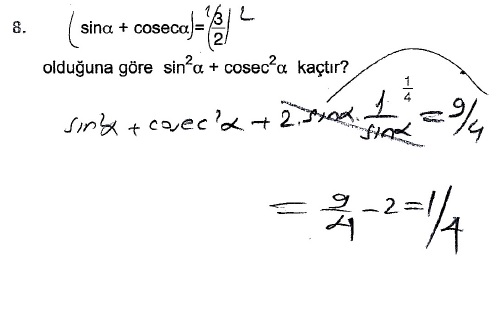 8. (sinα + cosecα)²=(3/2)²
olduğuna göre sin²α + cosec²α kaçtır?
1/4
sin²α + cosec²α + 2.sinα.1/sinα = 9/4
= 9/4 - 2 = 1/4